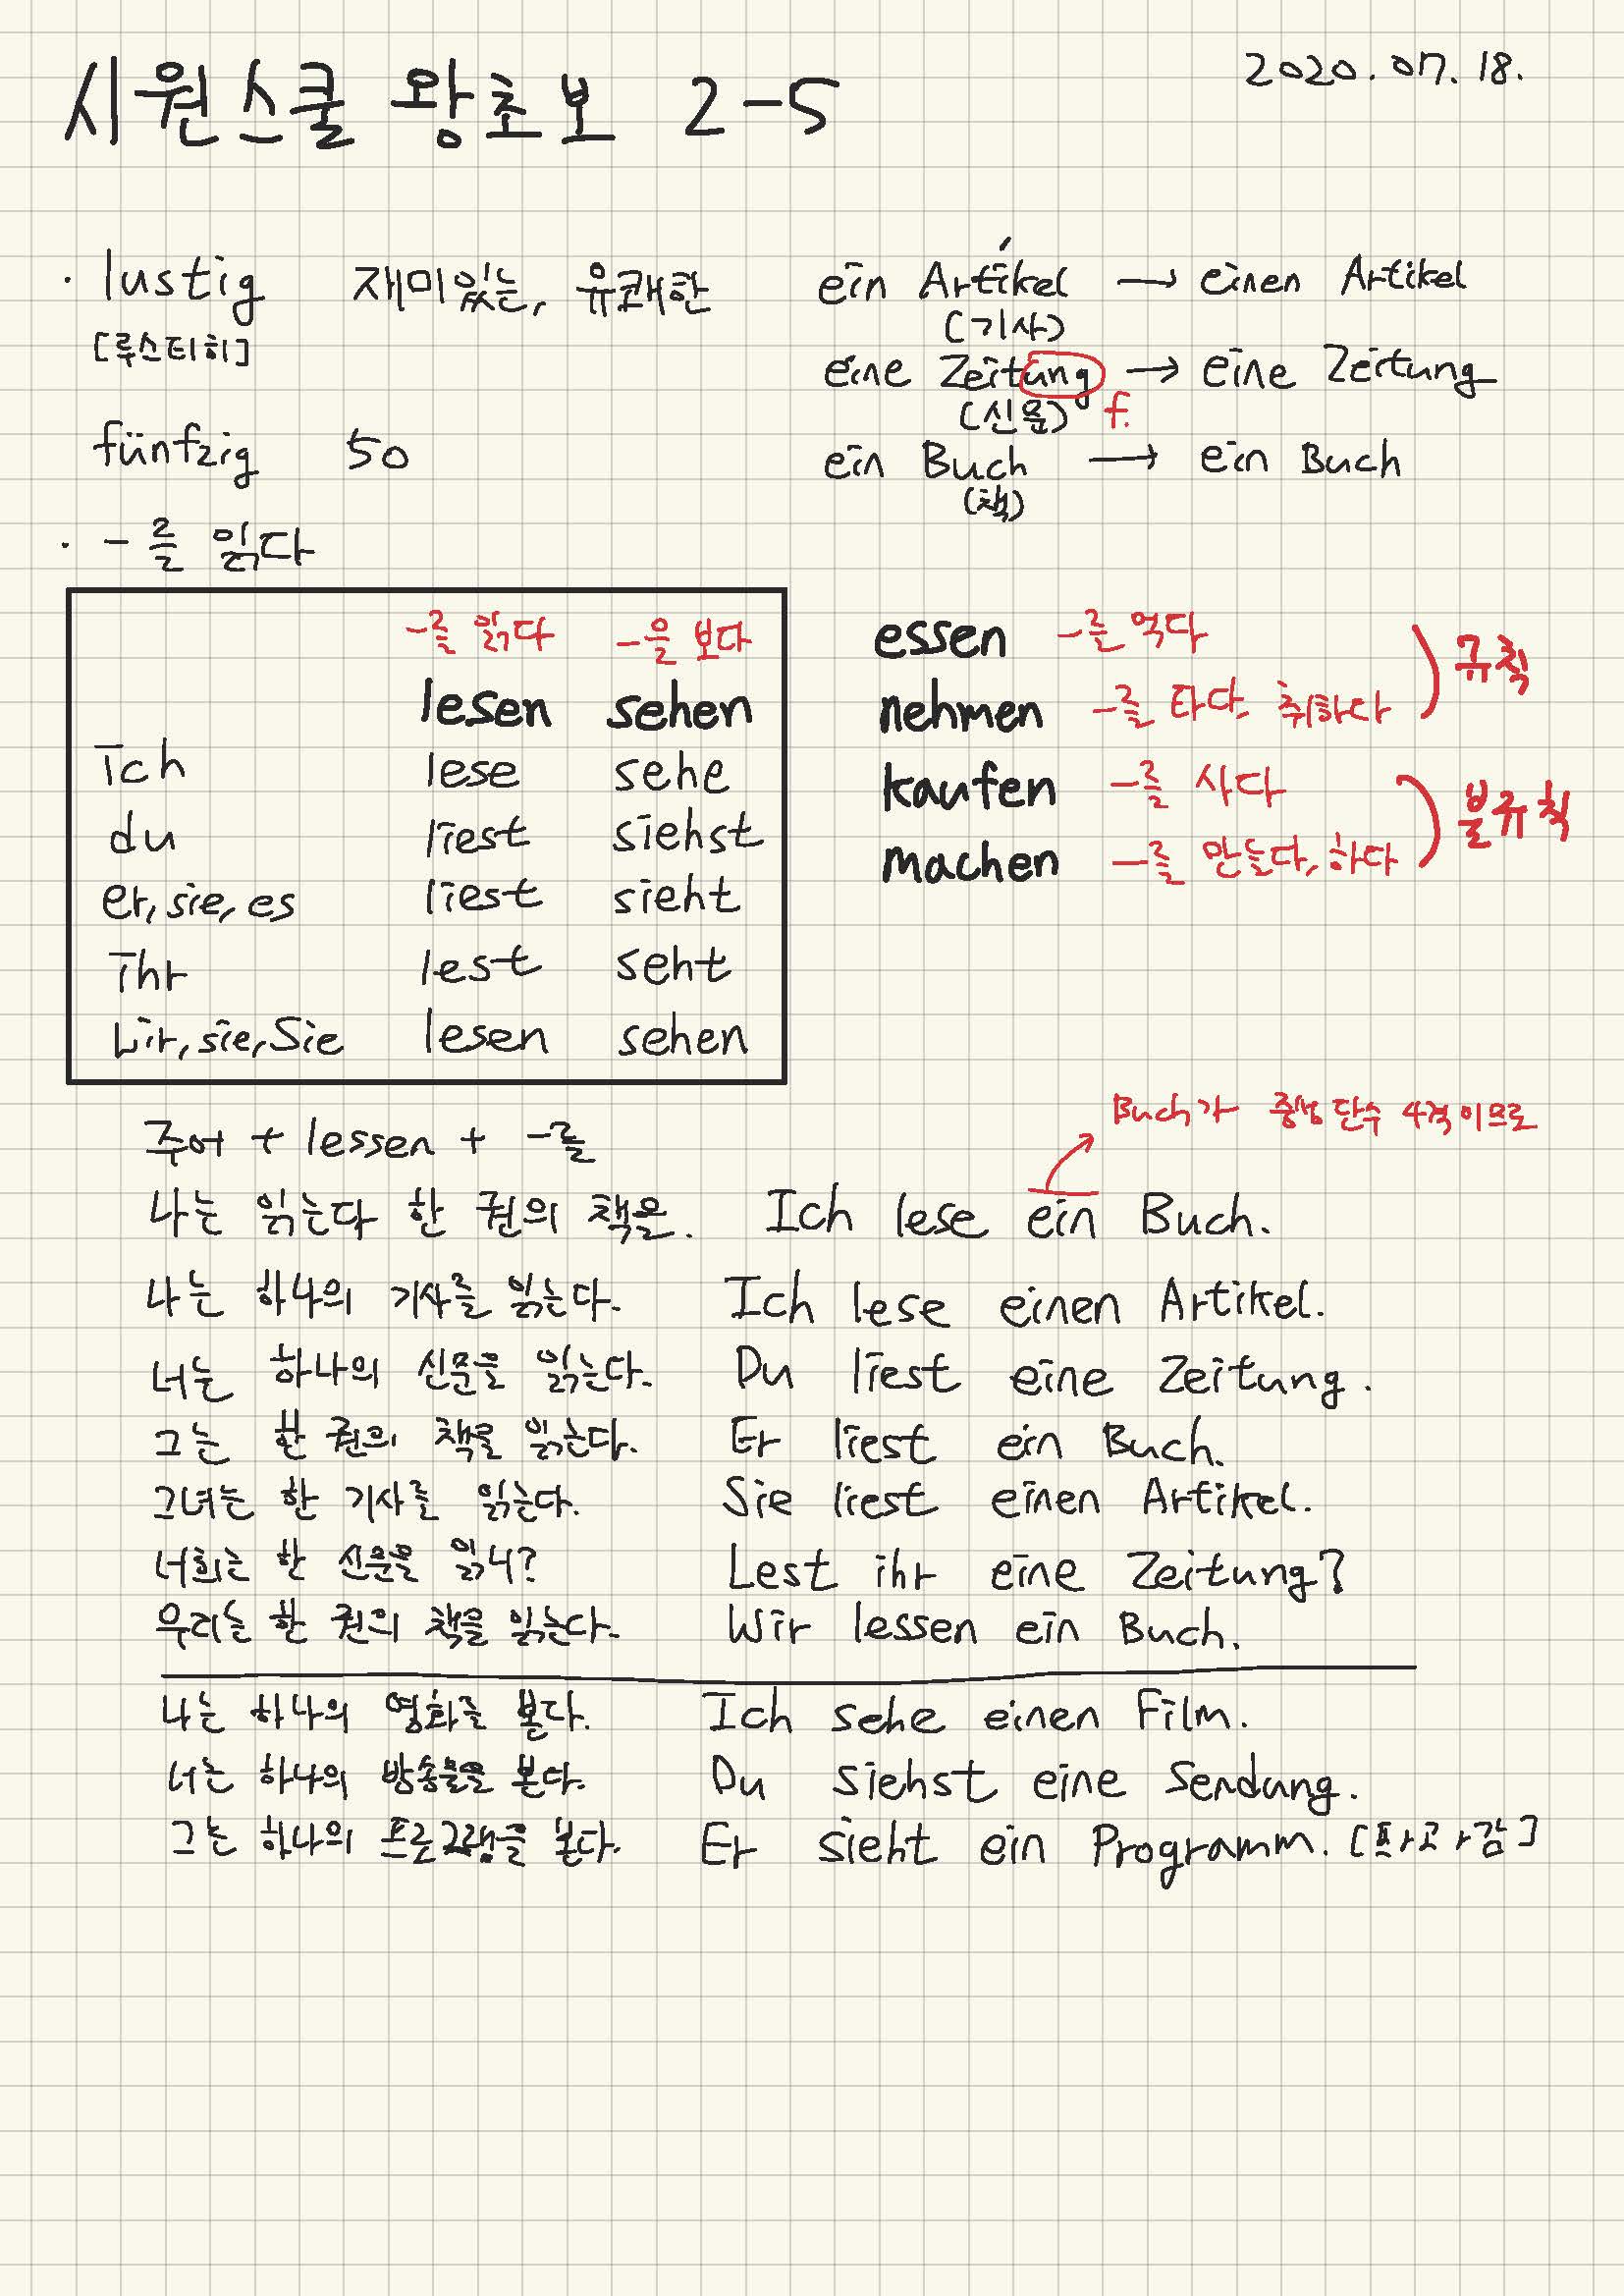 시원스쿨 왕초보 2-5
2020.07.18.
· lustig 재미있는, 유쾌한
[루스티히]
fünfzig 50
ein Artikel → einen Artikel
(기사)
eine Zeitung → eine Zeitung
(신문) f.
ein Buch → ein Buch
(책)
· -를 읽다
-를 읽다 -을 보다
lesen sehen
Ich lese sehe
du liest siehst
er, sie, es liest sieht
Ihr lest seht
Wir, sie, Sie lesen sehen
essen -를 먹다
nehmen -를 타다, 취하다
규칙
kaufen -를 사다
machen -를 만들다, 하다
불규칙
주어 + lessen + -를
Buch가 중성 단수 4격이므로
나는 읽는다 한 권의 책을. Ich lese ein Buch.
나는 하나의 기사를 읽는다. Ich lese einen Artikel.
너는 하나의 신문을 읽는다. Du liest eine Zeitung.
그는 한 권의 책을 읽는다. Er liest ein Buch.
그녀는 한 기사를 읽는다. Sie liest einen Artikel.
너희는 한 신문을 읽니? Lest ihr eine Zeitung?
우리는 한 권의 책을 읽는다. Wir lessen ein Buch.
나는 하나의 영화를 본다. Ich sehe einen Film.
너는 하나의 방송물을 본다. Du siehst eine Sendung.
그는 하나의 프로그램을 본다. Er sieht ein Programm. [프로그람]